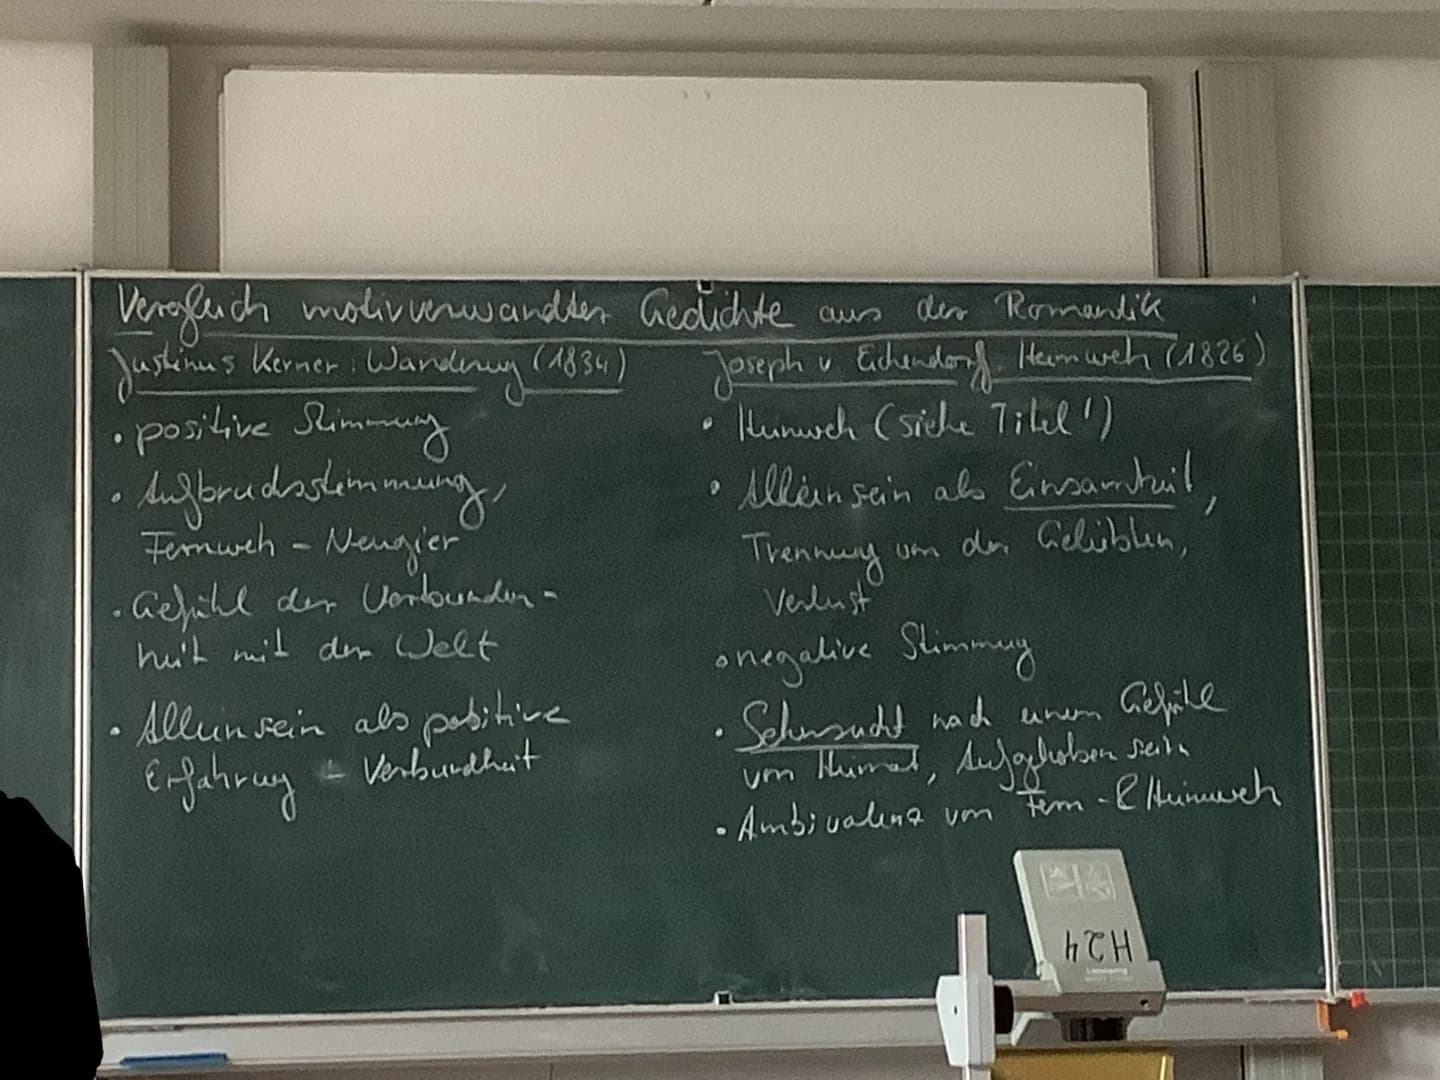 Vergleich motivverwandter Gedichte aus der Romantik
Justinus Kerner: Wanderung (1834)
• positive Stimmung
• Aufbruchsstimmung,
Fernweh - Neugier
• Gefühl der Verbunden-
heit mit der Welt
• Alleinsein als positive
Erfahrung - Verbundheit
Joseph v. Eichendorf. Heimweh (1826)
• Heimweh (siehe Titel!)
• Alleinsein als Einsamkeit,
Trennung von der Geliebten,
Verlust
• negative Stimmung
• Sehnsucht nach einem Gefühl
von Heimat, Aufgehoben sein
• Ambivalenz von Fern- & Heimweh
H24